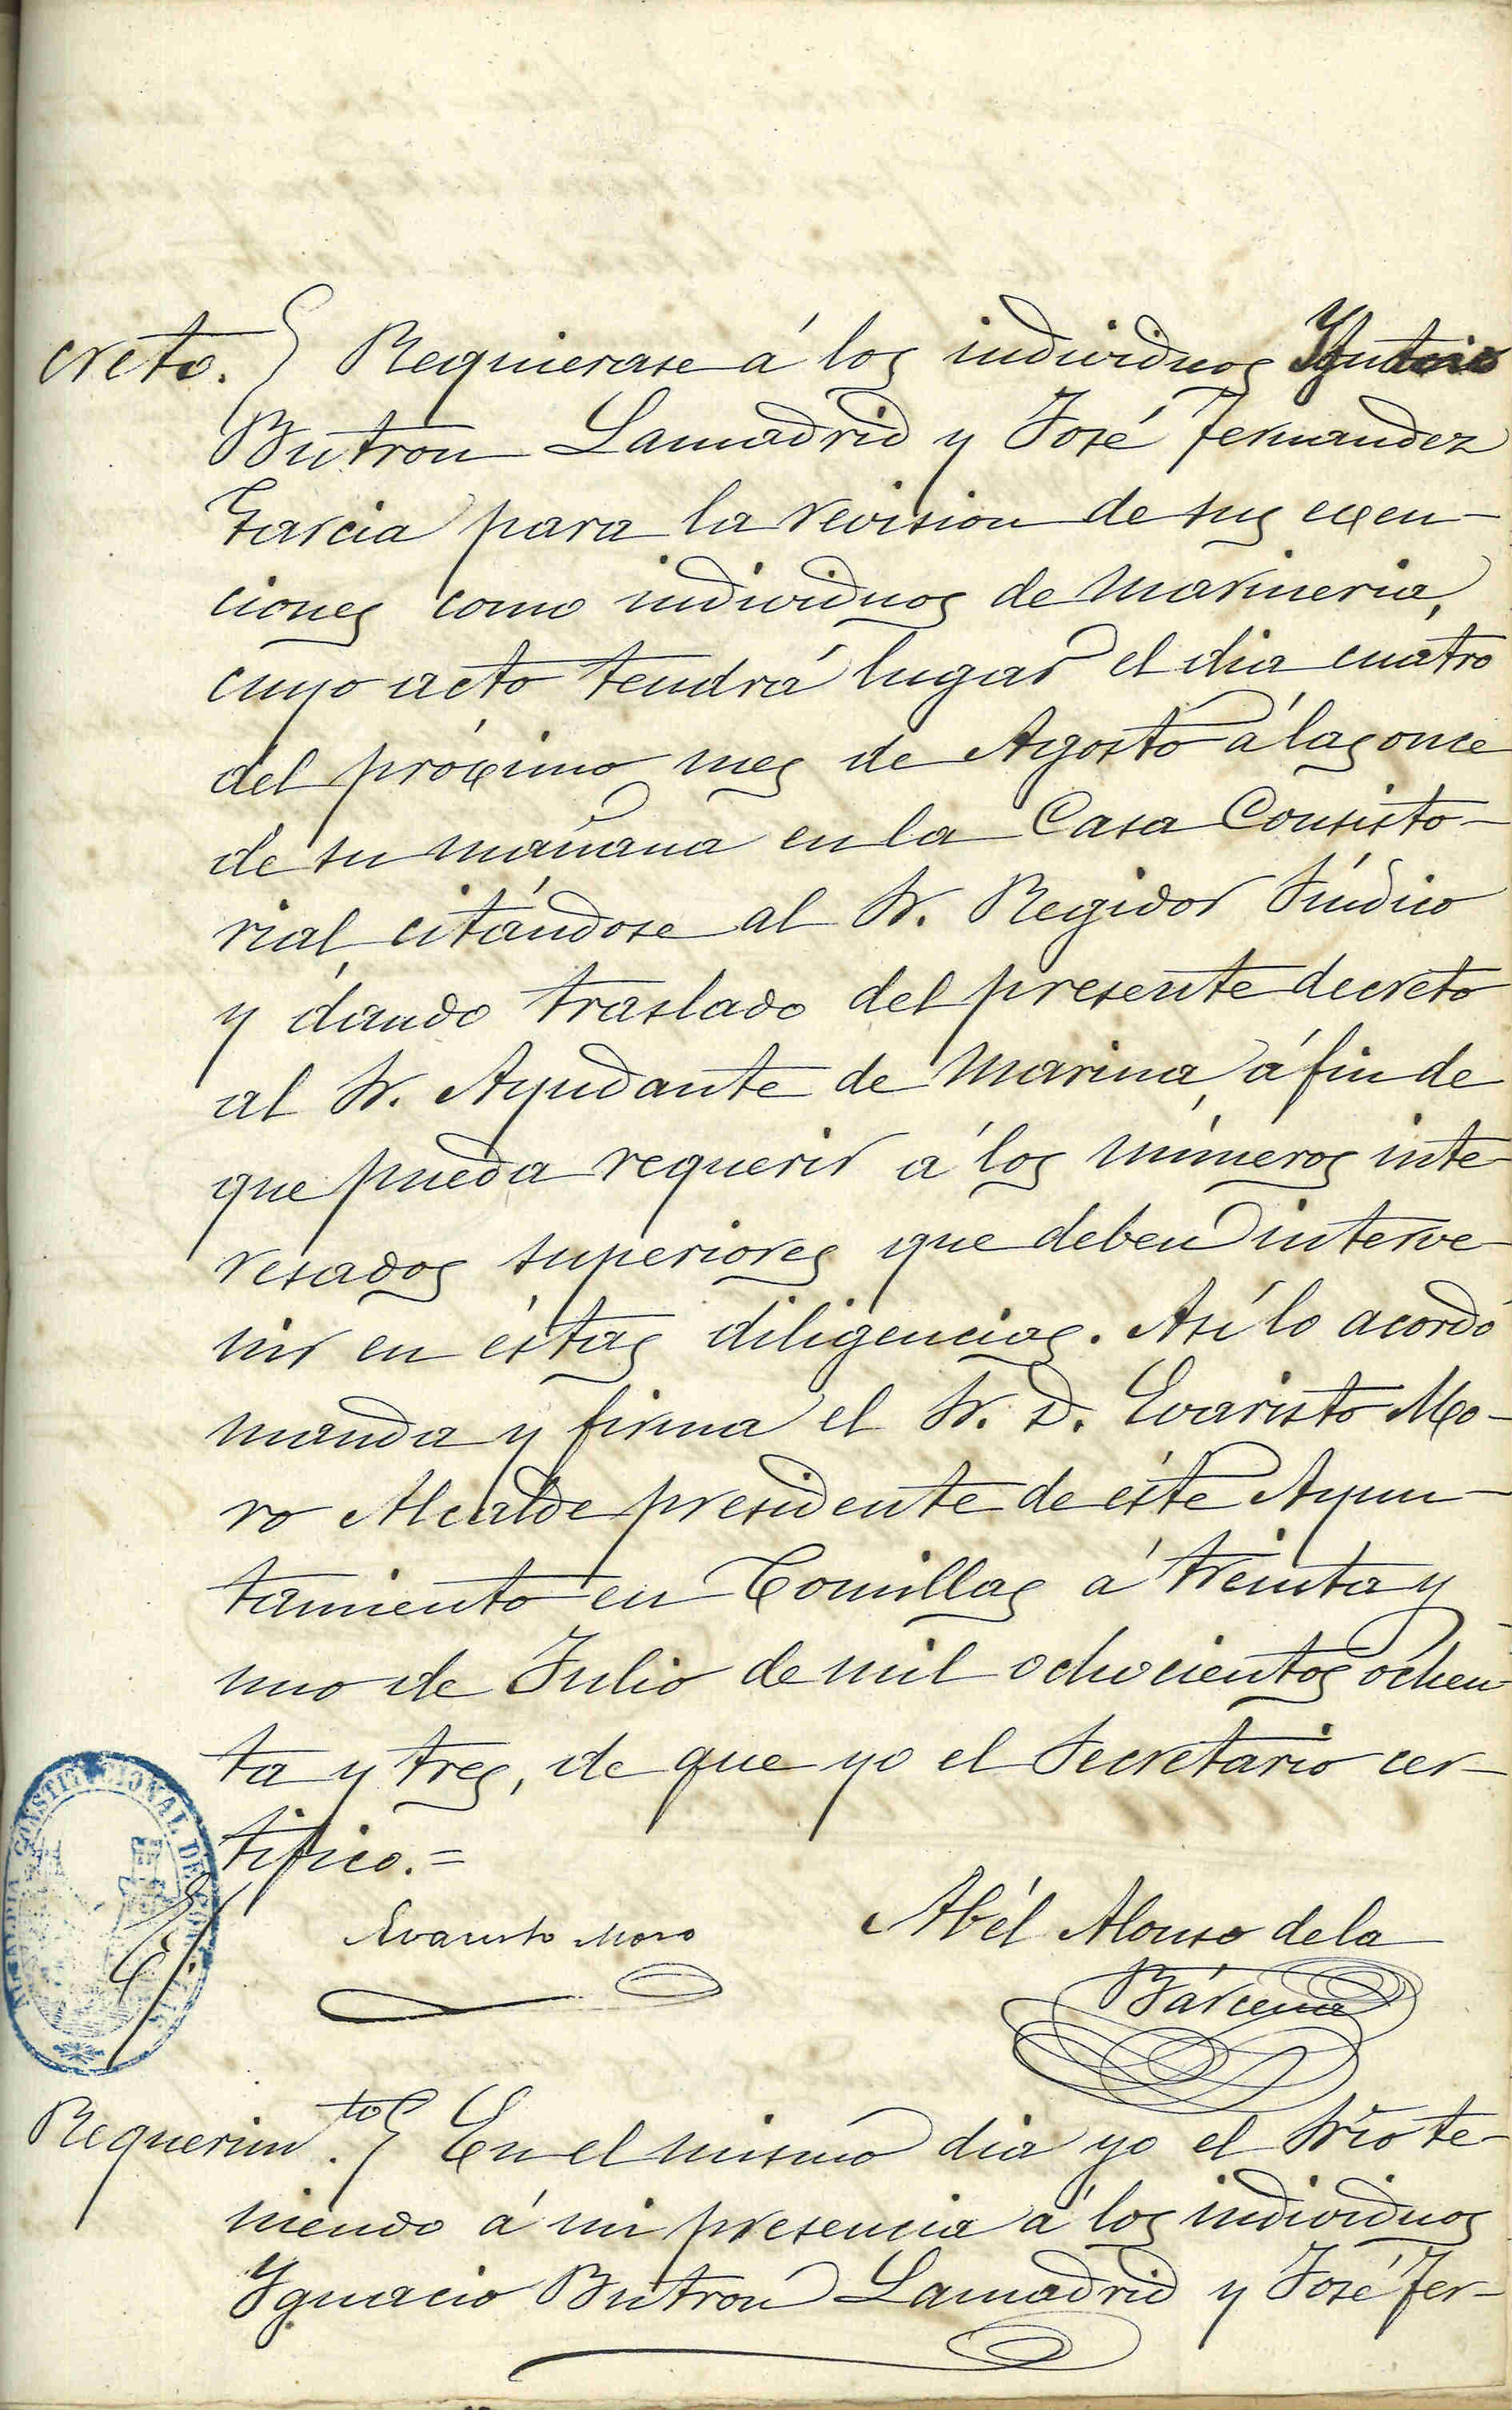 creto. } Requierase á los individuos
Butron Lamadrid y José Fernandez
Garcia para la revision de sus exen-
ciones como individuos de marineria,
cuyo acto tendrá lugar el dia cuatro
del próximo mes de Agosto á las once
de su mañana en la Casa Consisto-
rial, citándose al Sr. Regidor Síndico
y dando traslado del presente decreto
al Sr. Ayudante de Marina, á fin de
que pueda requerir á los números inte-
resados superiores que deben interve-
nir en éstas diligencias. Así lo acordó
manda y firma el Sr. D. Evaristo Mo-
ro Alcalde presidente de éste Ayun-
tamiento en Comillas á treinta y
uno de Julio de mil ochocientos ochen-
ta y tres, de que yo el Secretario cer-
tifico.=
Evaristo Moro
Abél Alonso de la
Bárcena
ALCALDIA CONSTITUCIONAL DE COMILLAS
Requerim.to } En el mismo dia yo el Srio te-
niendo á mi presencia á los individuos
Ygnacio Butron Lamadrid y José Fer-